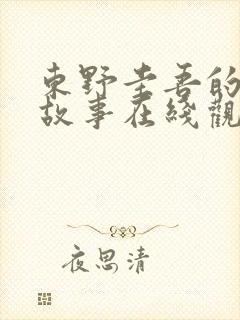 東野圭吾的
故事在綫觀
夜思清